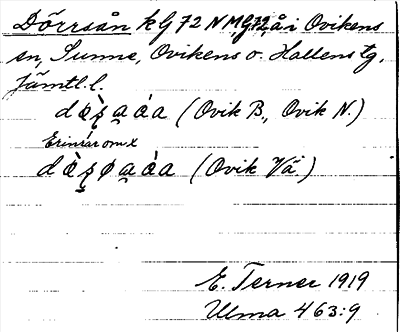 Dörrsån k G 72 N M, G 72, å i Ovikens
sn, Sunne, Ovikens o. Hallens tg,
Jämtl. l.
(Ovik B., Ovik N.)
Erinrar om x
(Ovik Vä.)
E. Terner 1919
Ulma 463:9